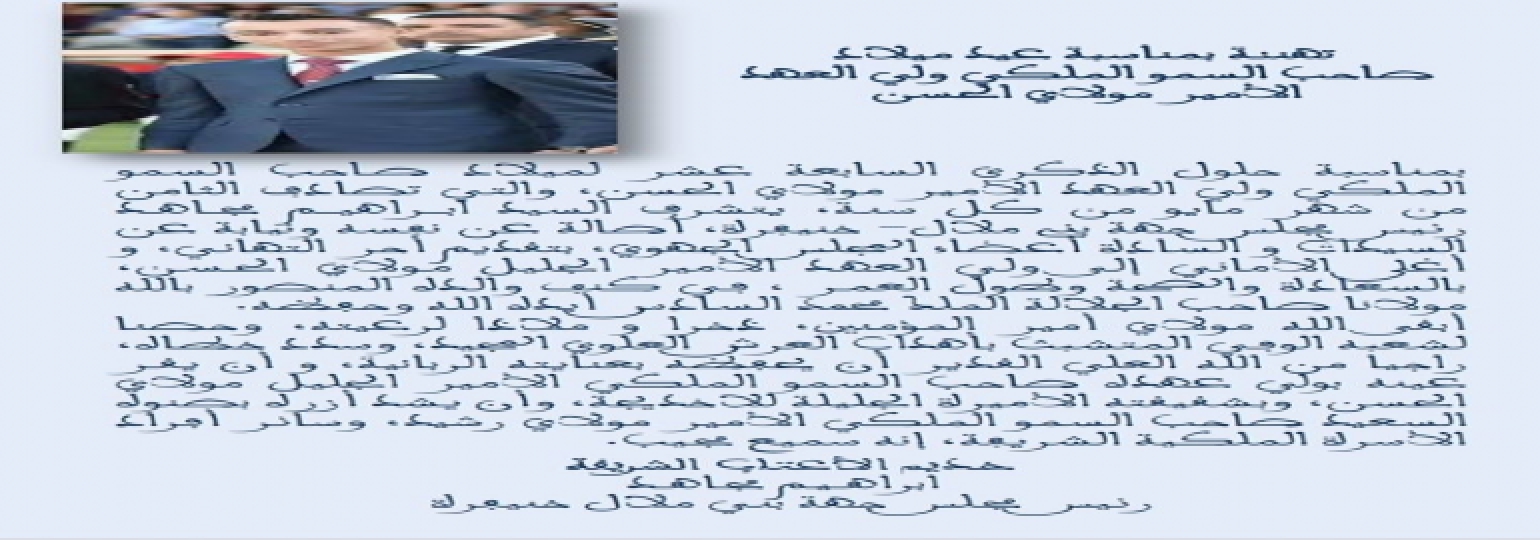 تهنئة بمناسبة عيد ميلاد
صاحب السمو الملكي ولي العهد
الأمير مولاي الحسن
بمناسبة حلول الذكرى السابعة عشر لميلاد صاحب السمو
الملكي ولي العهد الأمير مولاي الحسن، والتي تصادف الثامن
من شهر مايو من كل سنة، يتشرف السيد ابراهيم مجاهد
رئيس مجلس جهة بني ملال- خنيفرة، أصالة عن نفسه ونيابة عن
السيدات و السادة أعضاء المجلس الجهوي، بتقديم أحر التهاني، و
أغلى الأماني إلى ولي العهد الأمير الجليل مولاي الحسن،
بالسعادة والصحة وطول العمر ، في كنف والده المنصور بالله
مولانا صاحب الجلالة الملك محمد السادس أيده الله وحفظه.
أبقى الله مولاي أمير المؤمنين، ذخرا و ملاذا لرعيته، وحصنا
لشعبه الوفي المتشبث بأهداب العرش العلوي المجيد، وسدد خطاه،
راجيا من الله العلي القدير أن يحفظه بعنايته الربانية، و أن يقر
عينه بولي عهده صاحب السمو الملكي الأمير الجليل مولاي
الحسن، وبشقيقته الأميرة الجليلة للاخديجة، وأن يشد أزره بصنوه
السعيد صاحب السمو الملكي الأمير مولاي رشيد، وسائر أفراد
الأسرة الملكية الشريفة، إنه سميع مجيب.
خديم الأعتاب الشريفة
ابراهيم مجاهد
رئيس مجلس جهة بني ملال خنيفرة